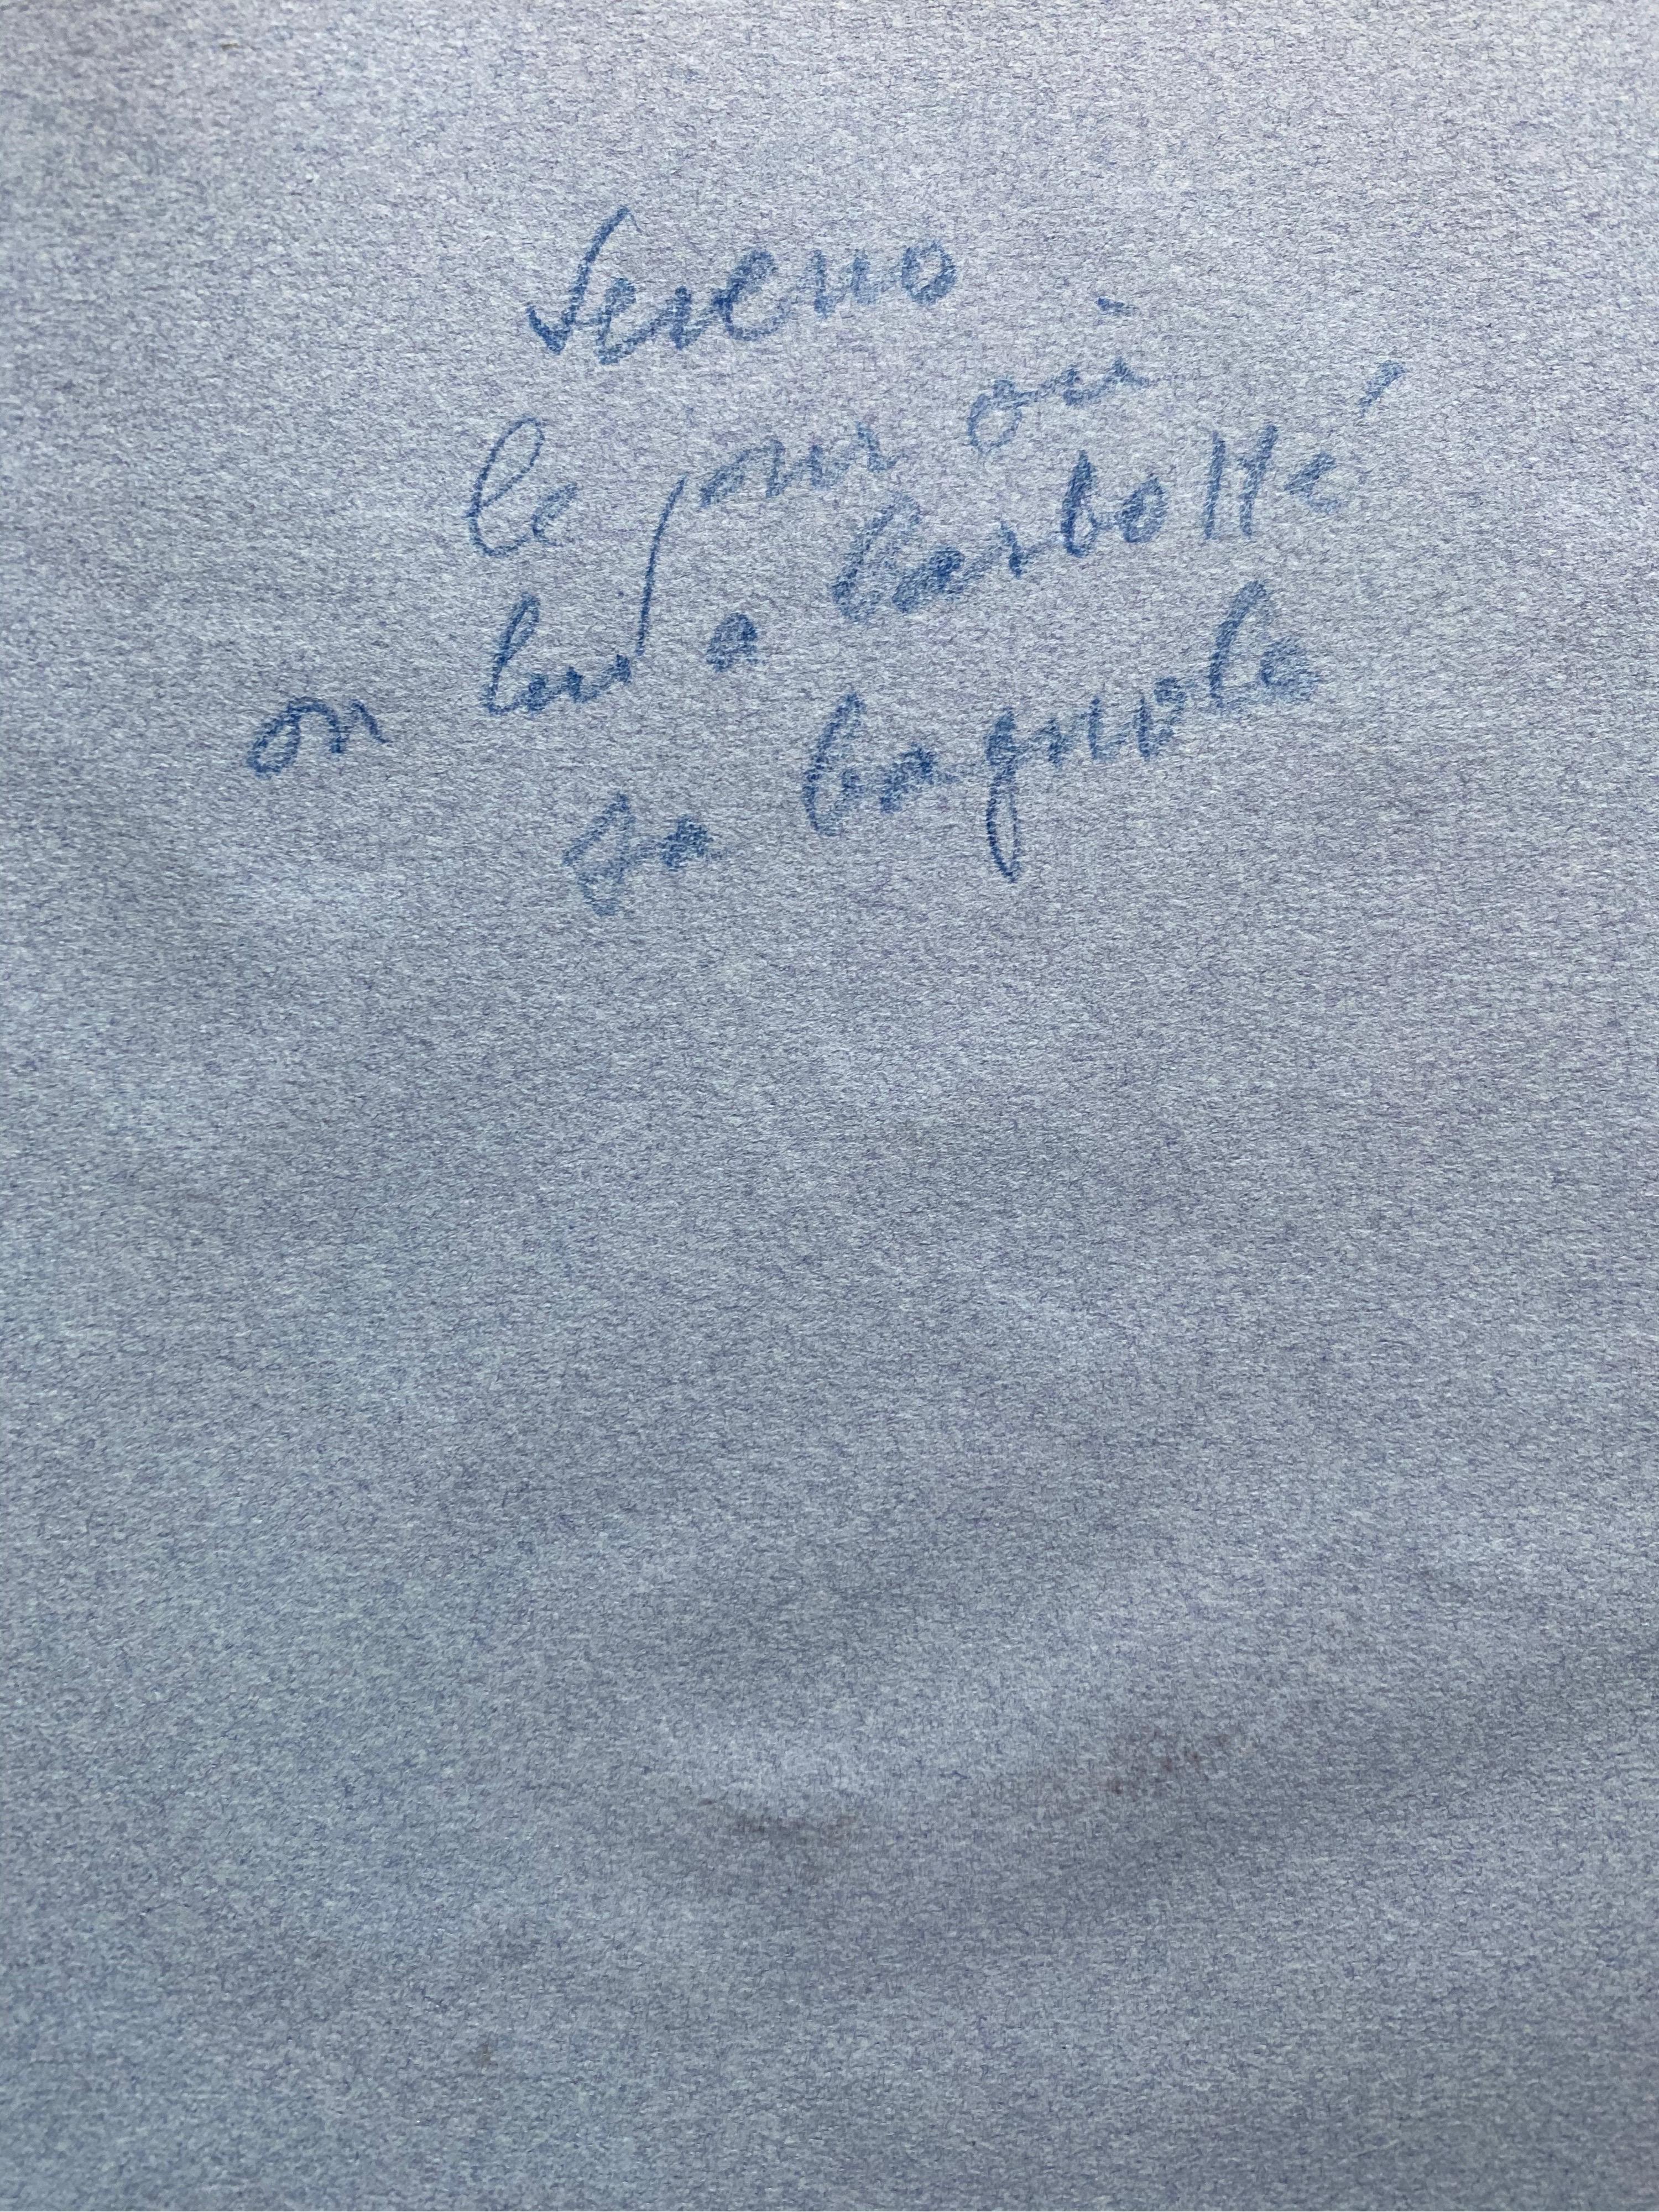 Sereno
le jour où
on lui a barbotté
sa bagnole